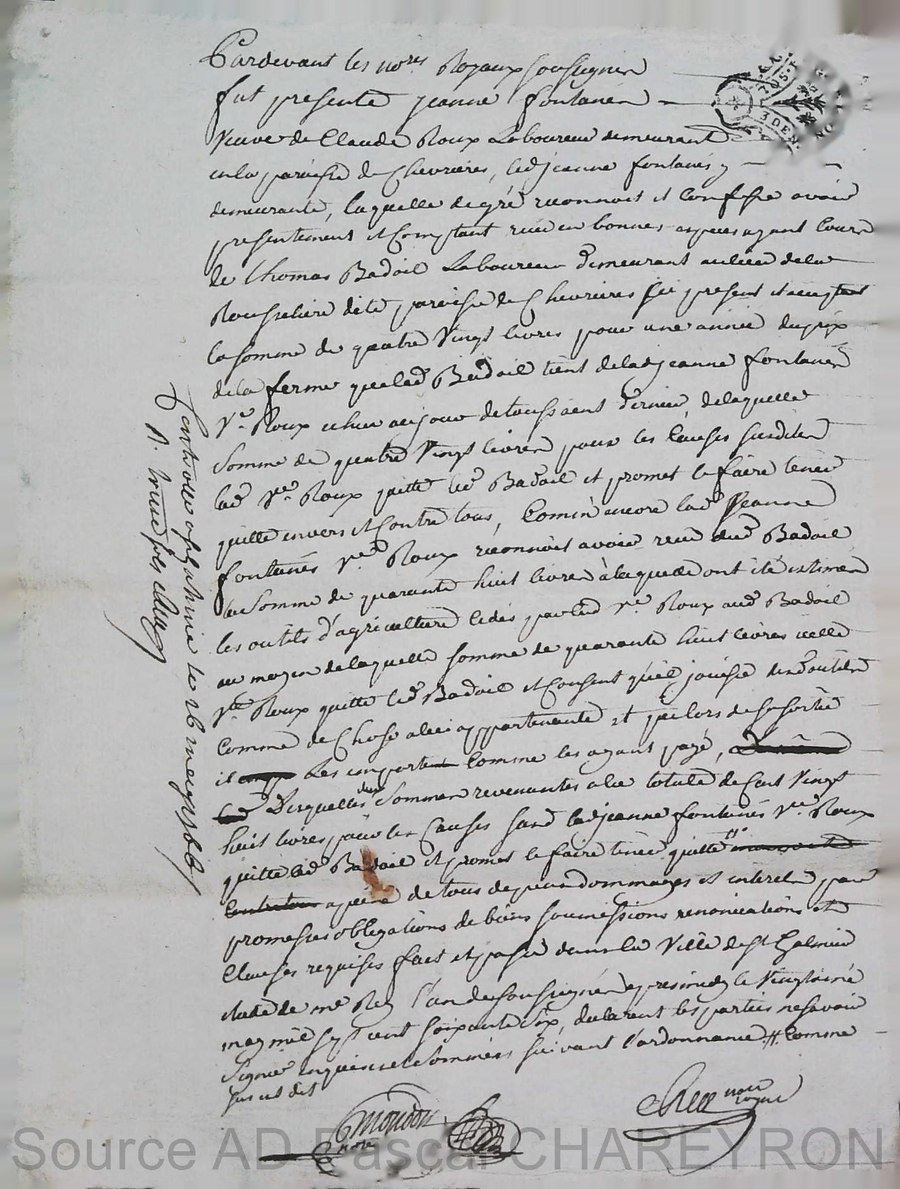 Pardevant les no.res Royaux soussignés
fut presente jeanne fontanés
veuve de Claude Roux Laboureur demeurant
en la paroisse de Chevrieres, lad jeanne fontanés y
demeurante, laquelle de gré reconnoit et confesse avoir
presentement et Comptant reçu en bonnes especes ayant Cours
de thomas Badoil Laboureur demeurant au lieu de la
paroisse de Chevrieres ici present et acceptant
la somme de quatre vingt livres pour une année du prix
de la ferme que led Badoil tient de lad jeanne fontanés
v.e Roux echue au jour de toussaint dernier de laquelle
somme de quatre vingt livres pour les Causes susdites
lad v.e Roux quitte led Badoil et promet le faire tenir
quitte envers et Contre tous, Comme ancore lad jeanne
fontanés v.e Roux reconnoit avoir reçu dud Badoil
la somme de quarante huit livres à laquelle ont été estimés
les outils d'agriculture cedés par lad v.e Roux aud Badoil
au moyen de laquelle somme de quarante huit livres icelle
v.e Roux quitte led Badoil et Consent qu'il jouisse desd outils
Comme de Chose a lui appartenante et que lors de sa sortie
il les emporte Comme les ayant payé,
Desquelles deux Sommes revenantes a la totale de Cent vingt
huit livres pour les Causes susd lad jeanne fontanés v.e Roux
quitte led Badoil et promet le faire tenir quitte #
a peine de tous depens dommages et interets par
promesses obligations de biens soumissions renonciations et
Clauses requises fait et passé dans la ville de S.t Galmier
etude de m.e Rey l'un des soussignés apres midy le vingt
may mil sept cent soixante six, declarent les parties ne scavoir
signer enquises et sommées suivant l'ordonnance # Comme
sus est dit
Mondon
no.re
Rey no.re
royal
Controllé a S.t Galmier le 26 may 1766
R. treize sols
Source AD Pascal CHAREYRON